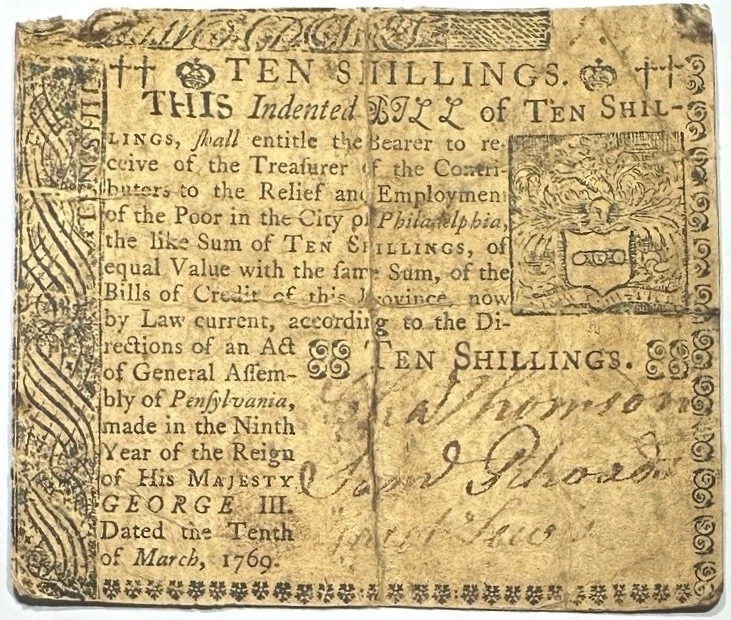 TEN SHILLINGS.
THIS Indented BILL of TEN SHIL-
LINGS, ſhall entitle the Bearer to re-
ceive of the Treaſurer of the Contri-
butors to the Relief and Employment
of the Poor in the City of Philadelphia,
the like Sum of TEN SHILLINGS, of
equal Value with the ſame Sum, of the
Bills of Credit of this Province, now
by Law current, according to the Di-
rections of an Act
of General Aſſem-
bly of Penſylvania,
made in the Ninth
Year of the Reign
of His MAJESTY
GEORGE III.
Dated the Tenth
of March, 1769.
TEN SHILLINGS.
Thomson
Sam Rhoads
Lewis
TEN SHIL